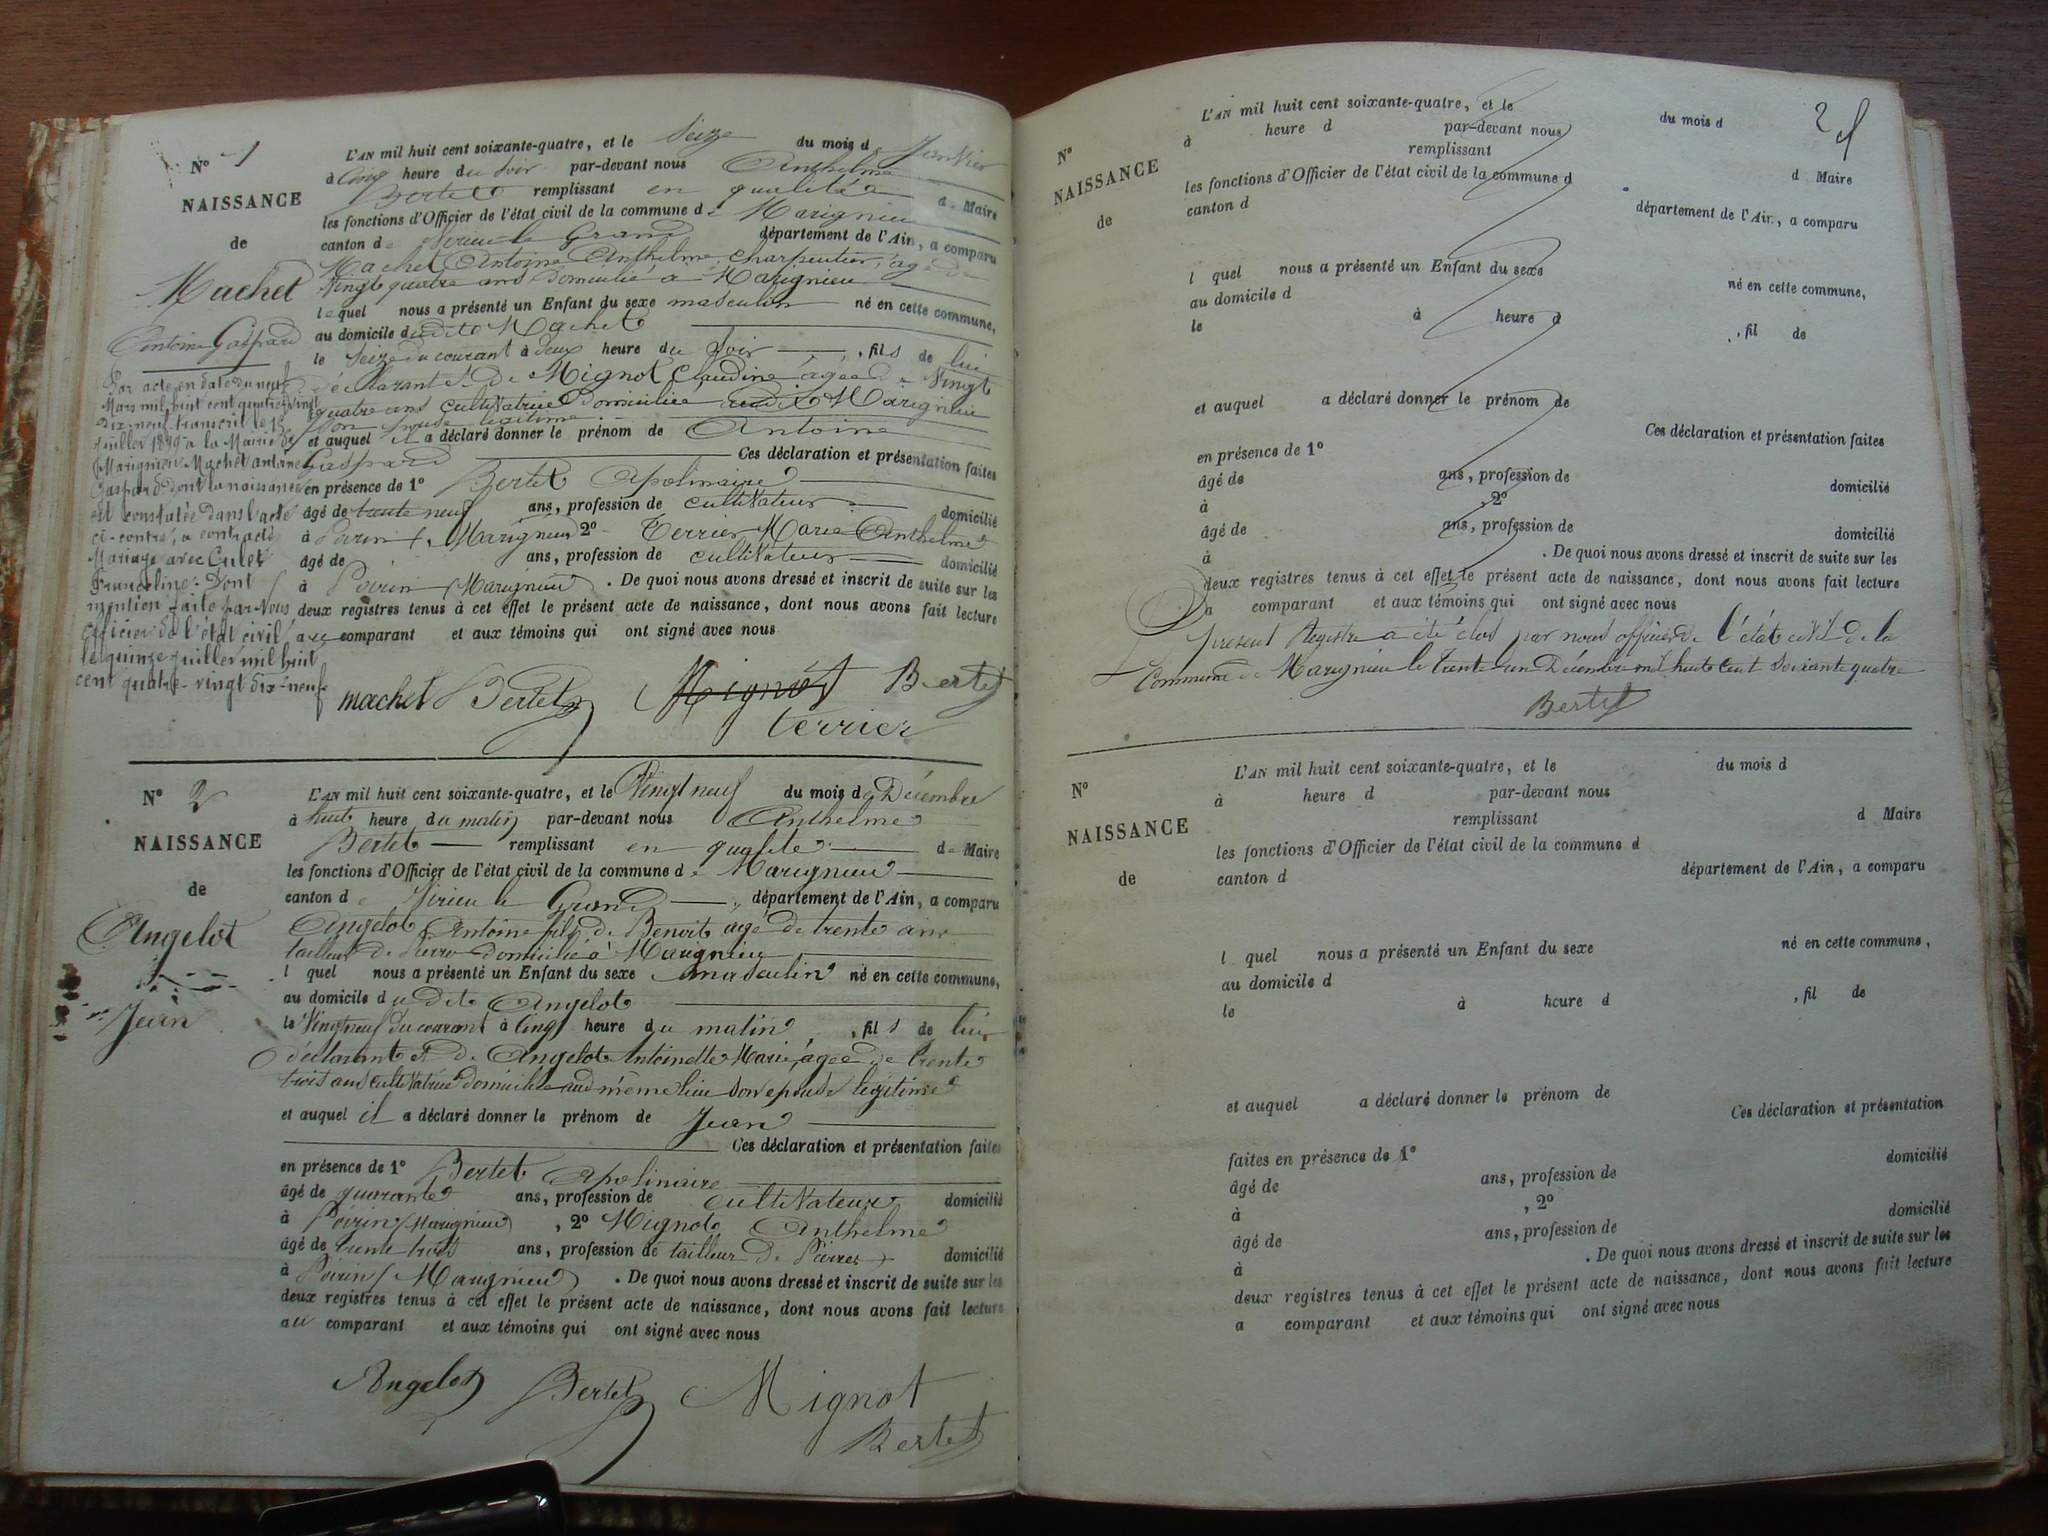 N° 1
NAISSANCE
de
Machet
Antoine Gaspard
Par acte en date du neuf
Mars mil huit cent quatre vingt
dix-neuf transcrit le 15
juillet 1899 à la Mairie de
Marignieu Machet antoine
Gaspard dont la naissance
est constatée dans l'acte
ci-contre, a contracté
Mariage avec Culet
Franceline. Dont
mention faite par Nous
officier de l'état civil,
le quinze juillet mil huit
cent quatre-vingt dix-neuf
L'AN mil huit cent soixante-quatre, et le Seize du mois de Janvier
à Cinq heure du Soir par-devant nous Anthelme
Bertet remplissant en qualité de Maire
les fonctions d'Officier de l'état civil de la commune de Marignieu
canton de Virieu le Grand département de l'Ain, a comparu
Machet Antoine Anthelme charpentier, agé de
Vingt quatre ans Domicilié à Marignieu
lequel nous a présenté un Enfant du sexe masculin né en cette commune,
au domicile dudit Machet
le Seize du courant à deux heure du Soir , fils de lui
déclarant et de Mignot Claudine agée de Vingt
quatre ans cultivatrice Domiciliée audit Marignieu
Son epouse legitime
et auquel il a déclaré donner le prénom de Antoine
Gaspard Ces déclaration et présentation faites
en présence de 1° Bertet Apolinaire
âgé de trente neuf ans, profession de cultivateur domicilié
à Poirin (Marignieu) 2° Terrier Marie Anthelme
âgé de ans, profession de cultivateur domicilié
à Poirin (Marignieu) . De quoi nous avons dressé et inscrit de suite sur les
deux registres tenus à cet effet le présent acte de naissance, dont nous avons fait lecture
au comparant et aux témoins qui ont signé avec nous
machet Bertet Mignot Bertet
terrier
N° 2
NAISSANCE
de
Angelot
Jean
L'AN mil huit cent soixante-quatre, et le Vingt neuf du mois de Décembre
à huit heure du matin par-devant nous Anthelme
Bertet remplissant en qualité de Maire
les fonctions d'Officier de l'état civil de la commune de Marignieu
canton de Virieu le Grand département de l'Ain, a comparu
Angelot Antoine fils de Benoit agé de trente ans
tailleur de Pierre domicilié à Marignieu
l quel nous a présenté un Enfant du sexe masculin né en cette commune,
au domicile dudit Angelot
le Vingt neuf du courant à Cinq heure du matin , fils de lui
déclarant et de Angelot Antoinette Marie, agée de trente
trois ans cultivatrice domiciliée aud même lieu son epouse legitime
et auquel il a déclaré donner le prénom de Jean
Ces déclaration et présentation faites
en présence de 1° Bertet Apolinaire
âgé de quarante ans, profession de cultivateur domicilié
à Poirin (Marignieu) , 2° Mignot Anthelme
âgé de trente trois ans, profession de tailleur de Pierres domicilié
à Poirin (Marignieu) . De quoi nous avons dressé et inscrit de suite sur les
deux registres tenus à cet effet le présent acte de naissance, dont nous avons fait lecture
au comparant et aux témoins qui ont signé avec nous
Angelot Bertet Mignot
Bertet
2
N°
NAISSANCE
de
L'AN mil huit cent soixante-quatre, et le du mois d
à heure d par-devant nous
remplissant d Maire
les fonctions d'Officier de l'état civil de la commune d
canton d département de l'Ain, a comparu
l quel nous a présenté un Enfant du sexe né en cette commune,
au domicile d
le à heure d , fil de
et auquel a déclaré donner le prénom de
Ces déclaration et présentation faites
en présence de 1°
âgé de ans, profession de domicilié
à 2°
âgé de ans, profession de domicilié
à . De quoi nous avons dressé et inscrit de suite sur les
deux registres tenus à cet effet le présent acte de naissance, dont nous avons fait lecture
a comparant et aux témoins qui ont signé avec nous
present Registre a été clos par nous officier de l'état civil de la
Commune de Marignieu le trente un Décembre mil huit cent soixante quatre
Bertet
N°
NAISSANCE
de
L'AN mil huit cent soixante-quatre, et le du mois d
à heure d par-devant nous
remplissant d Maire
les fonctions d'Officier de l'état civil de la commune d
canton d département de l'Ain, a comparu
l quel nous a présenté un Enfant du sexe né en cette commune,
au domicile d
le à heure d , fil de
et auquel a déclaré donner le prénom de
Ces déclaration et présentation
faites en présence de 1°
âgé de ans, profession de domicilié
à , 2°
âgé de ans, profession de domicilié
à . De quoi nous avons dressé et inscrit de suite sur les
deux registres tenus à cet effet le présent acte de naissance, dont nous avons fait lecture
a comparant et aux témoins qui ont signé avec nous